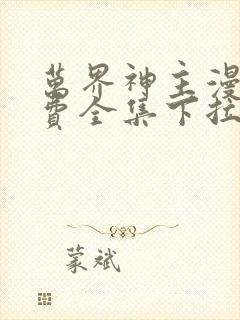 萬界神主漫
費全集下拉
蒙斌